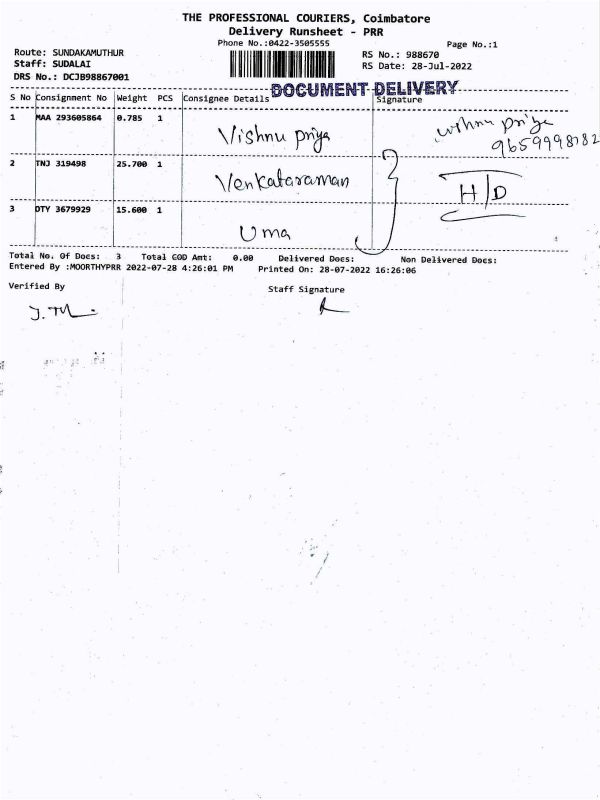 THE PROFESSIONAL COURIERS, Coimbatore
Delivery Runsheet - PRR
Phone No.:0422-3505555
Page No.:1
Route: SUNDAKAMUTHUR
RS No.: 988670
Staff: SUDALAI
RS Date: 28-Jul-2022
DRS No.: DCJB98867001
DOCUMENT DELIVERY
S No Consignment No Weight PCS Consignee Details Signature
1 MAA 293605864 0.785 1 Vishnu priya vishnu priya
9659998782
2 TNJ 319498 25.700 1 Venkataraman H/D
3 DTY 3679929 15.600 1 Uma
Total No. Of Docs: 3 Total COD Amt: 0.00 Delivered Docs: Non Delivered Docs:
Entered By :MOORTHYPRR 2022-07-28 4:26:01 PM Printed On: 28-07-2022 16:26:06
Verified By Staff Signature